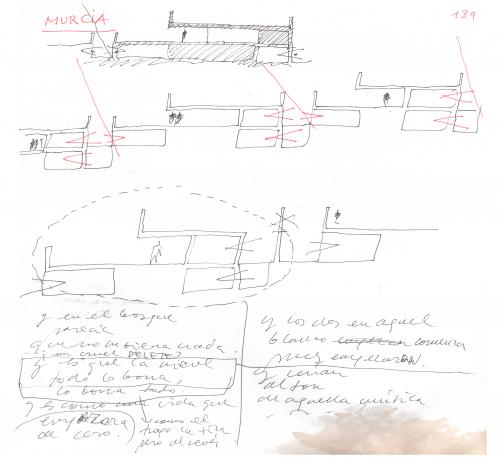 MURCIA
139
y en el bosque
parecía
que no hubiera nada.
y un cruel DELETE?
y es que la nieve
todo lo borra,
lo borra todo
y es como una vida que
empezara
de cero.
y como el
trago la tila
pero al revés
y los dos en aquel
blanco comienza
pues empezaron.
y
al son
de aquella música